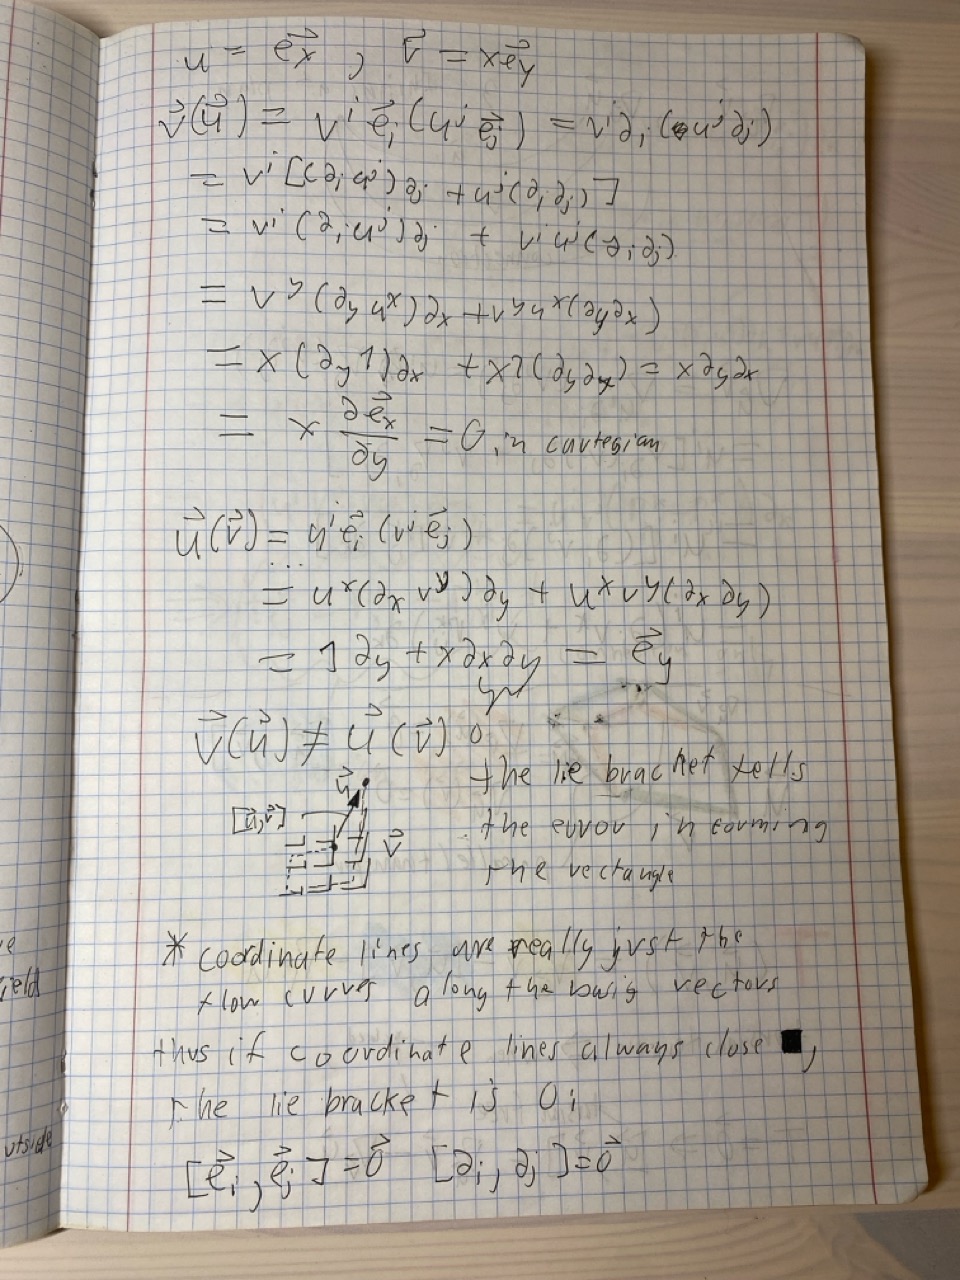 u = e⃗x , v⃗ = xe⃗y
v⃗(u⃗) = vⁱ e⃗i (uʲ e⃗j) = vⁱ∂i (uʲ∂j)
= vⁱ[(∂i uʲ)∂j + uʲ(∂i∂j)]
= vⁱ(∂i uʲ)∂j + vⁱuʲ(∂i∂j)
= vʸ(∂y uˣ)∂x + vʸuˣ(∂y∂x)
= x(∂y1)∂x + x1(∂y∂x) = x∂y∂x
= x ∂e⃗x/∂y = 0 in cartesian
u⃗(v⃗) = uⁱe⃗i (vʲe⃗j)
...
= uˣ(∂x vʸ)∂y + uˣvʸ(∂x∂y)
= 1∂y + x∂x∂y = e⃗y
v⃗(u⃗) ≠ u⃗(v⃗) 0
the lie bracket tells
the error in forming
the rectangle
u⃗
[u⃗,v⃗]
v⃗
* coordinate lines are really just the
flow curves along the basis vectors
thus if coordinate lines always close ,
the lie bracket is 0:
[e⃗i, e⃗j] = 0⃗ [∂i, ∂j] = 0⃗
ield
utside